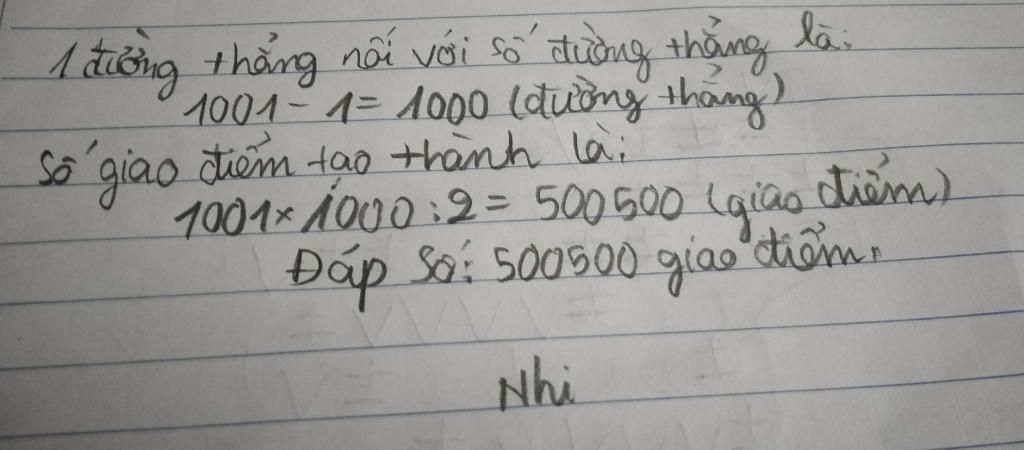 1 đường thẳng nối với số đường thẳng là:
1001 - 1 = 1000 (đường thẳng)
Số giao điểm tạo thành là:
1001 x 1000 : 2 = 500500 (giao điểm)
Đáp số: 500500 giao điểm.
Nhi